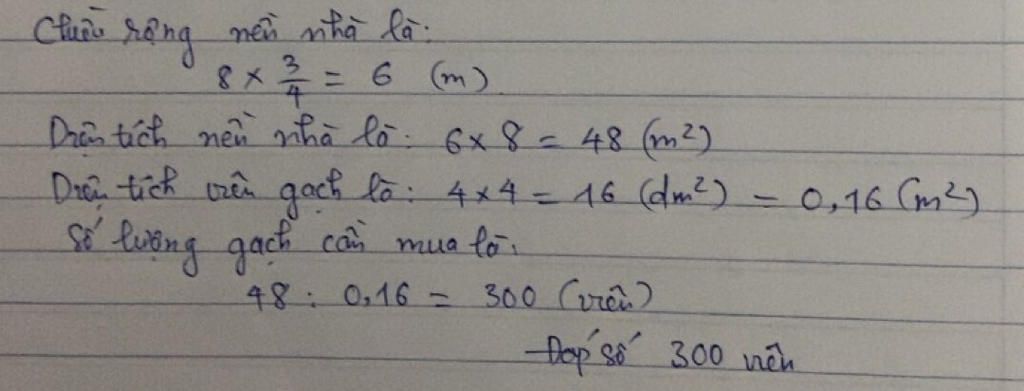 Chiều rộng nền nhà là:
8 × 3/4 = 6 (m)
Diện tích nền nhà là: 6 × 8 = 48 (m²)
Diện tích viên gạch là: 4 × 4 = 16 (dm²) = 0,16 (m²)
Số lượng gạch cần mua là:
48 : 0,16 = 300 (viên)
Đáp số 300 viên